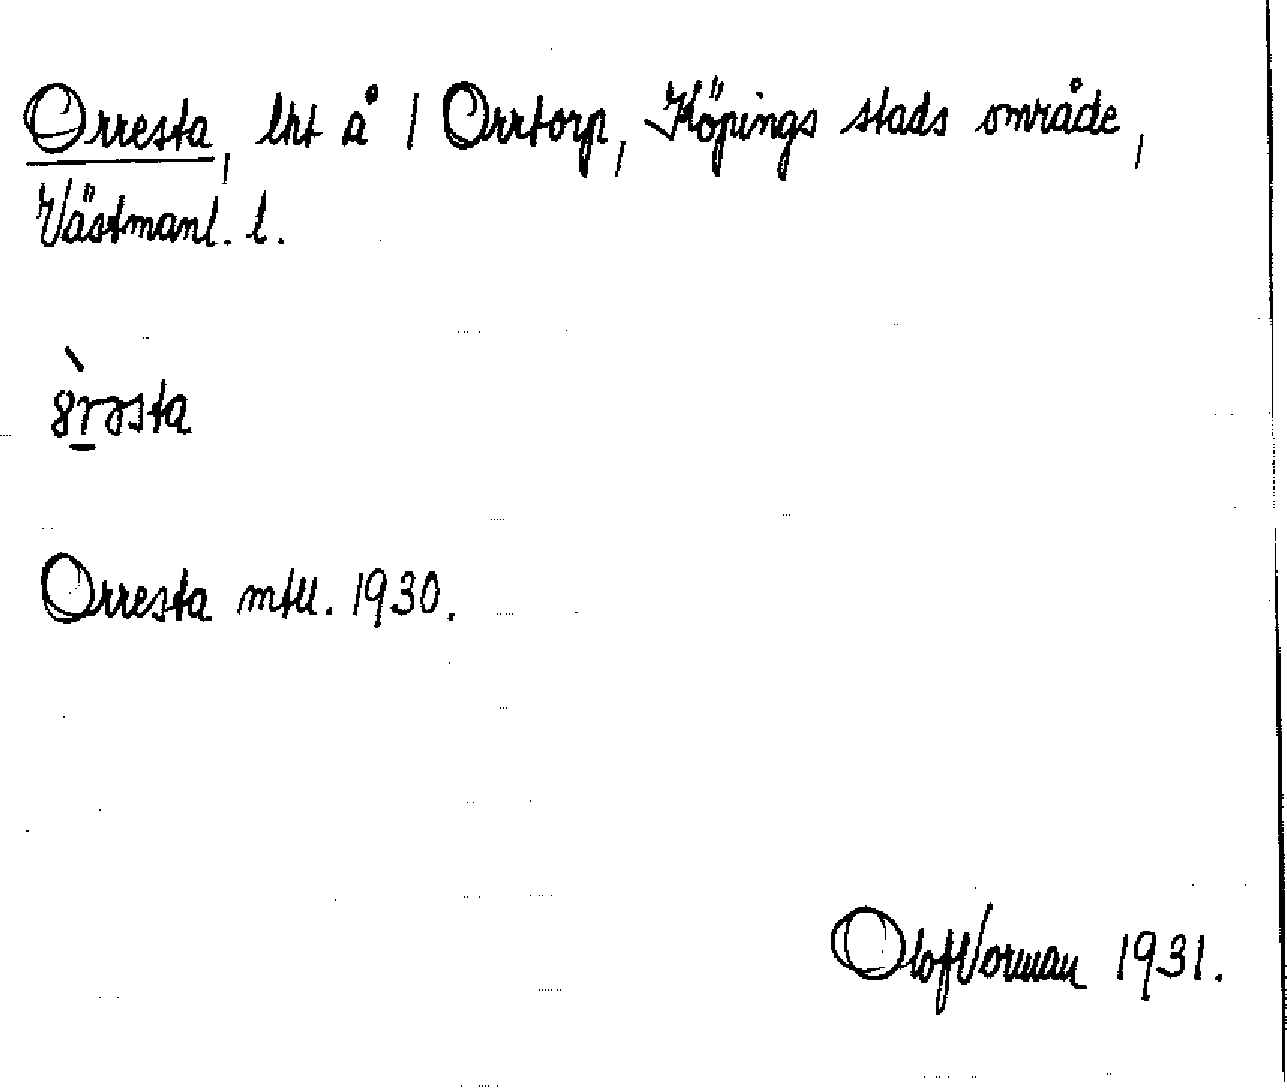 Orresta, lht å 1 Orrtorp, Köpings stads område,
Västmanl. l.
Orresta mtll. 1930.
Olof Vorman 1931.